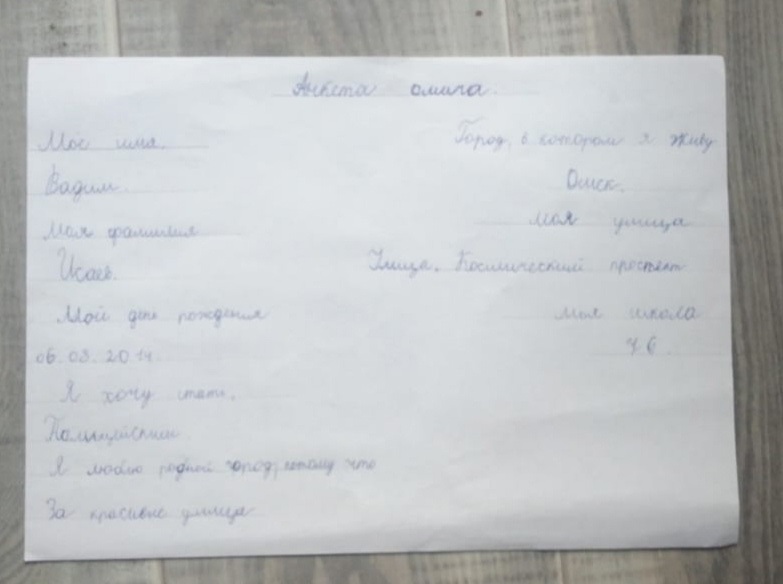 Анкета омича.
Мое имя.
Вадим.
Моя фамилия
Исаев.
Мой день рождения
06.03.2014
Я хочу стать.
Полицейским.
Я люблю родной город, потому что
За красивые улица
Город, в котором я живу
Омск.
моя улица
Улица. Космический проспект
моя школа
76.